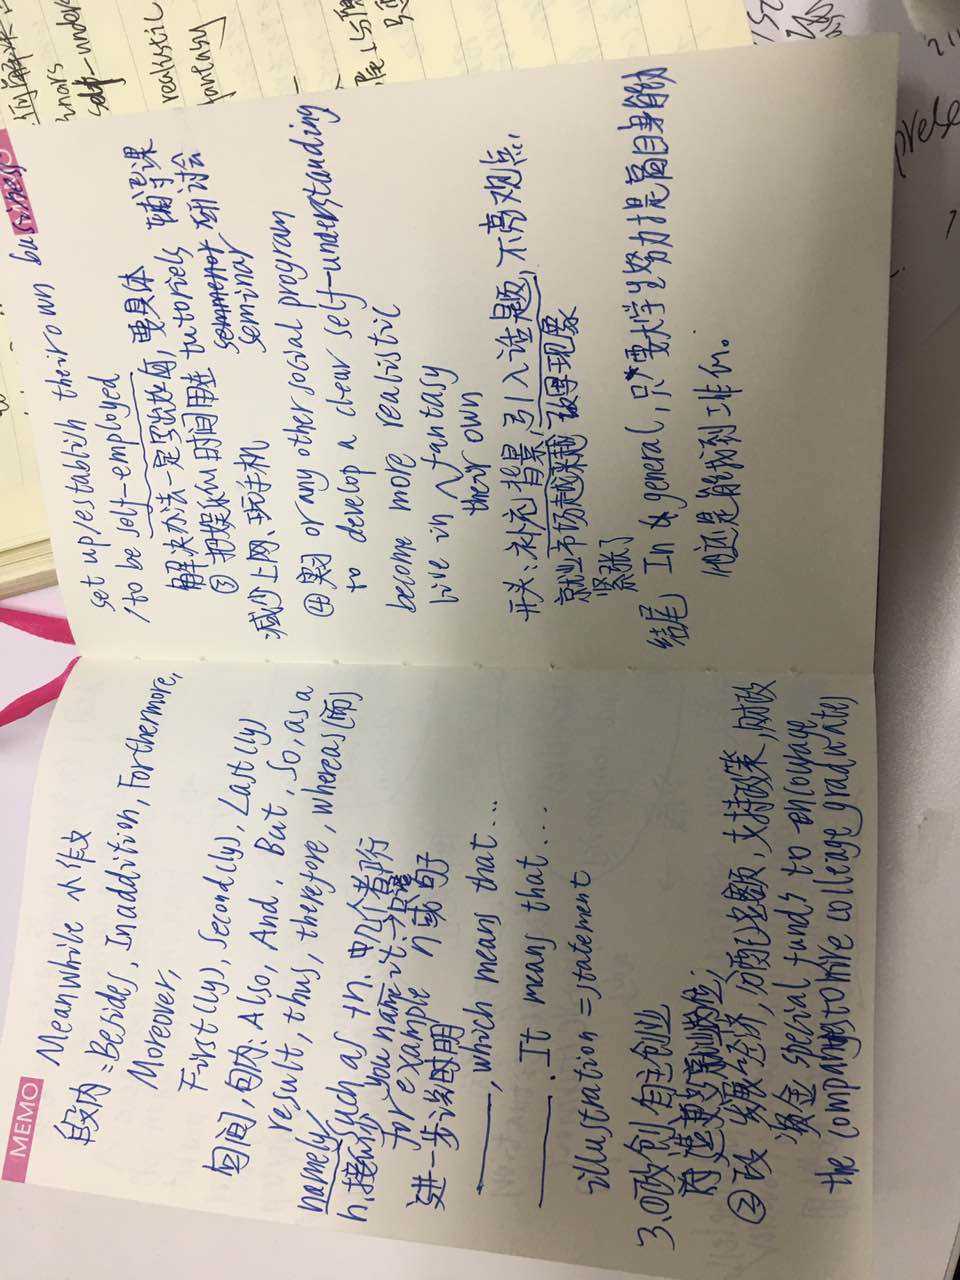 MEMO
Meanwhile 小作文
段内:Beside, In addition, Forthermore,
Moreover,
First(ly), Second(ly), Last(ly)
句间,句内:Also, And, But, So, as a
result, thus, therefore, whereas(而)
namely,
such as +n.中1个都行
you name it
for example n或句子
进一步说明
——, which means that...
——. It means that...
illustration = statement
3.①政创 自主创业
府造更多就业岗位,
②政 发展经济,分配名额,支持政策,财政
资金 special funds to encouyage
the companys to hire colleage graduate)
set up/establish their own business
/to be self-employed
解决办法一定写出好用,要具体
③把娱乐的时间用进 tutoriels 辅导课
seminar 研讨会
减少上网、玩手机
④ or any other social program
to develop a clear self-understanding
become more realistic
live in ∧ fantasy
their own
开头:补充背景,引入话题,不亮观点,
就业市场越来越
紧张了
结尾 In general,只要大学生努力提高自身能力
他还是能找到工作的。
self-under
realistic
fantasy